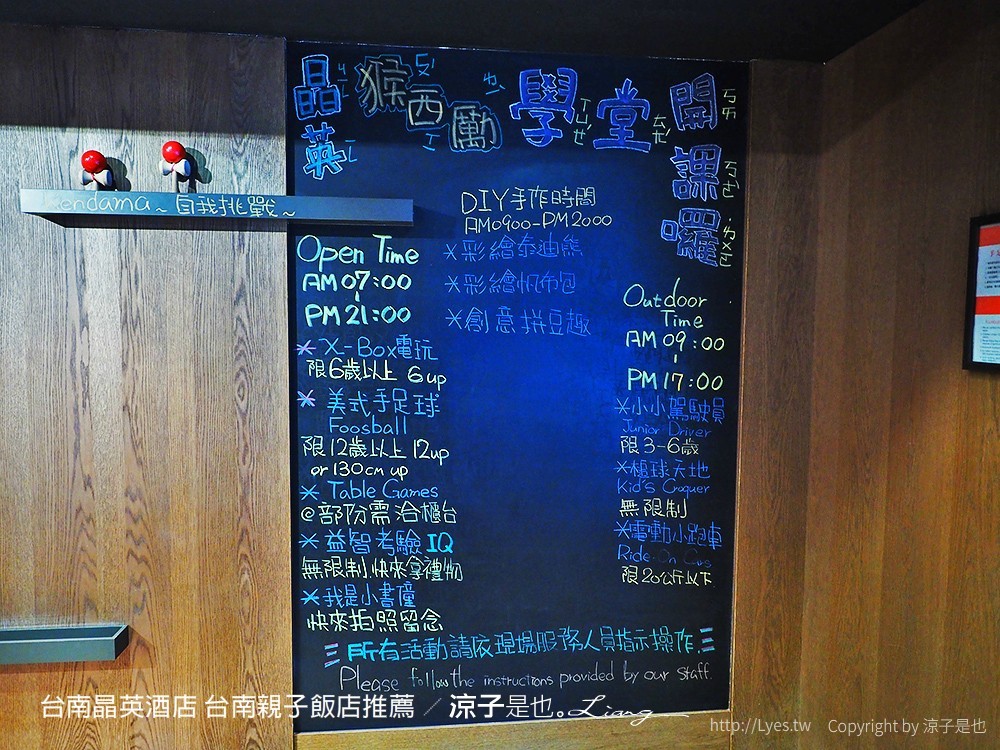 晶英
猴西勵學堂
開課囉
Kendama~自我挑戰~
DIY手作時間
AM0900-PM2000
*彩繪泰迪熊
*彩繪帆布包
*創意拼豆趣
Open Time
AM 07:00
PM 21:00
*X-Box電玩
限6歲以上 6up
*美式手足球
Foosball
限12歲以上 12up
or 130cm up
*Table Games
@部份需洽櫃台
*益智考驗IQ
無限制,快來拿禮物
*我是小書僮
快來拍照留念
Outdoor
Time
AM 09:00
PM 17:00
*小小駕駛員
Junior Driver
限3-6歲
*槌球天地
Kid's Croquer
無限制
*電動小跑車
Ride-On Cars
限20公斤以下
所有活動請依現場服務人員指示操作.
Please follow the instructions provided by our staff.
台南晶英酒店 台南親子飯店推薦 / 涼子是也。Liang
http://Lyes.tw Copyright by 涼子是也